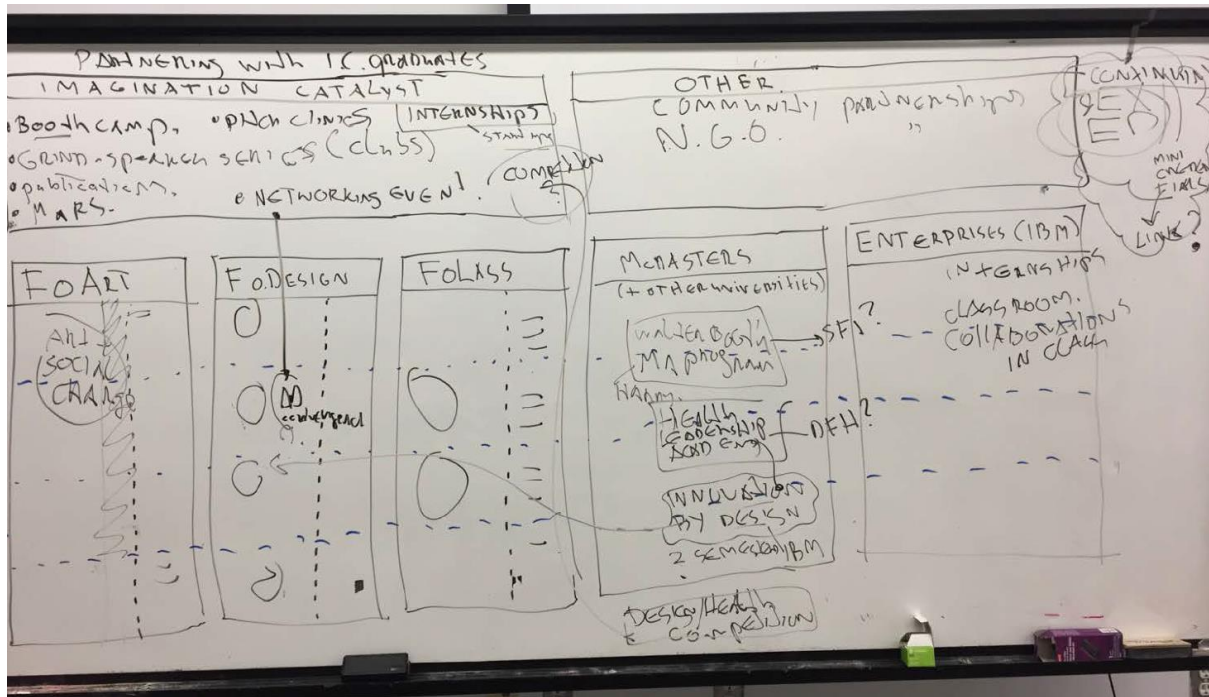 PARTNERING WITH I.C. GRADUATES
IMAGINATION CATALYST
• BOOTHCAMP. • PITCH CLINICS INTERNSHIPS
START UPS
• GRIND - SPEAKER SERIES (CLUBS)
• publications.
• MARS. • NETWORKING EVENT! COMPETITION
?
OTHER.
COMMUNITY PARTNERSHIPS
N.G.O. "
CONTINUIN
EX
ED
MINI
FIARS
LINK?
FoART
ART
SOCIAL
CHANGE
Fo.DESIGN
convergence
?
FoLASS
McMASTERS
(+ OTHER UNIVERSITIES)
WALTER BOOTH
MA PROGRAM
SFI?
HARRY.
HEALTH
LEADERSHIP
ACADEMY
DFH?
INNOVATION
BY DESIGN
2 SEMESTER/IBM
DESIGN/HEALTH
COMPETITION
ENTERPRISES (IBM)
INTERNSHIPS
CLASSROOM.
COLLABORATIONS
IN CLASS